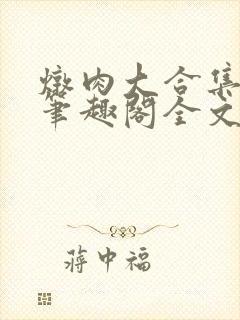 燉肉大合集
笔趣阁全文
蒋中福